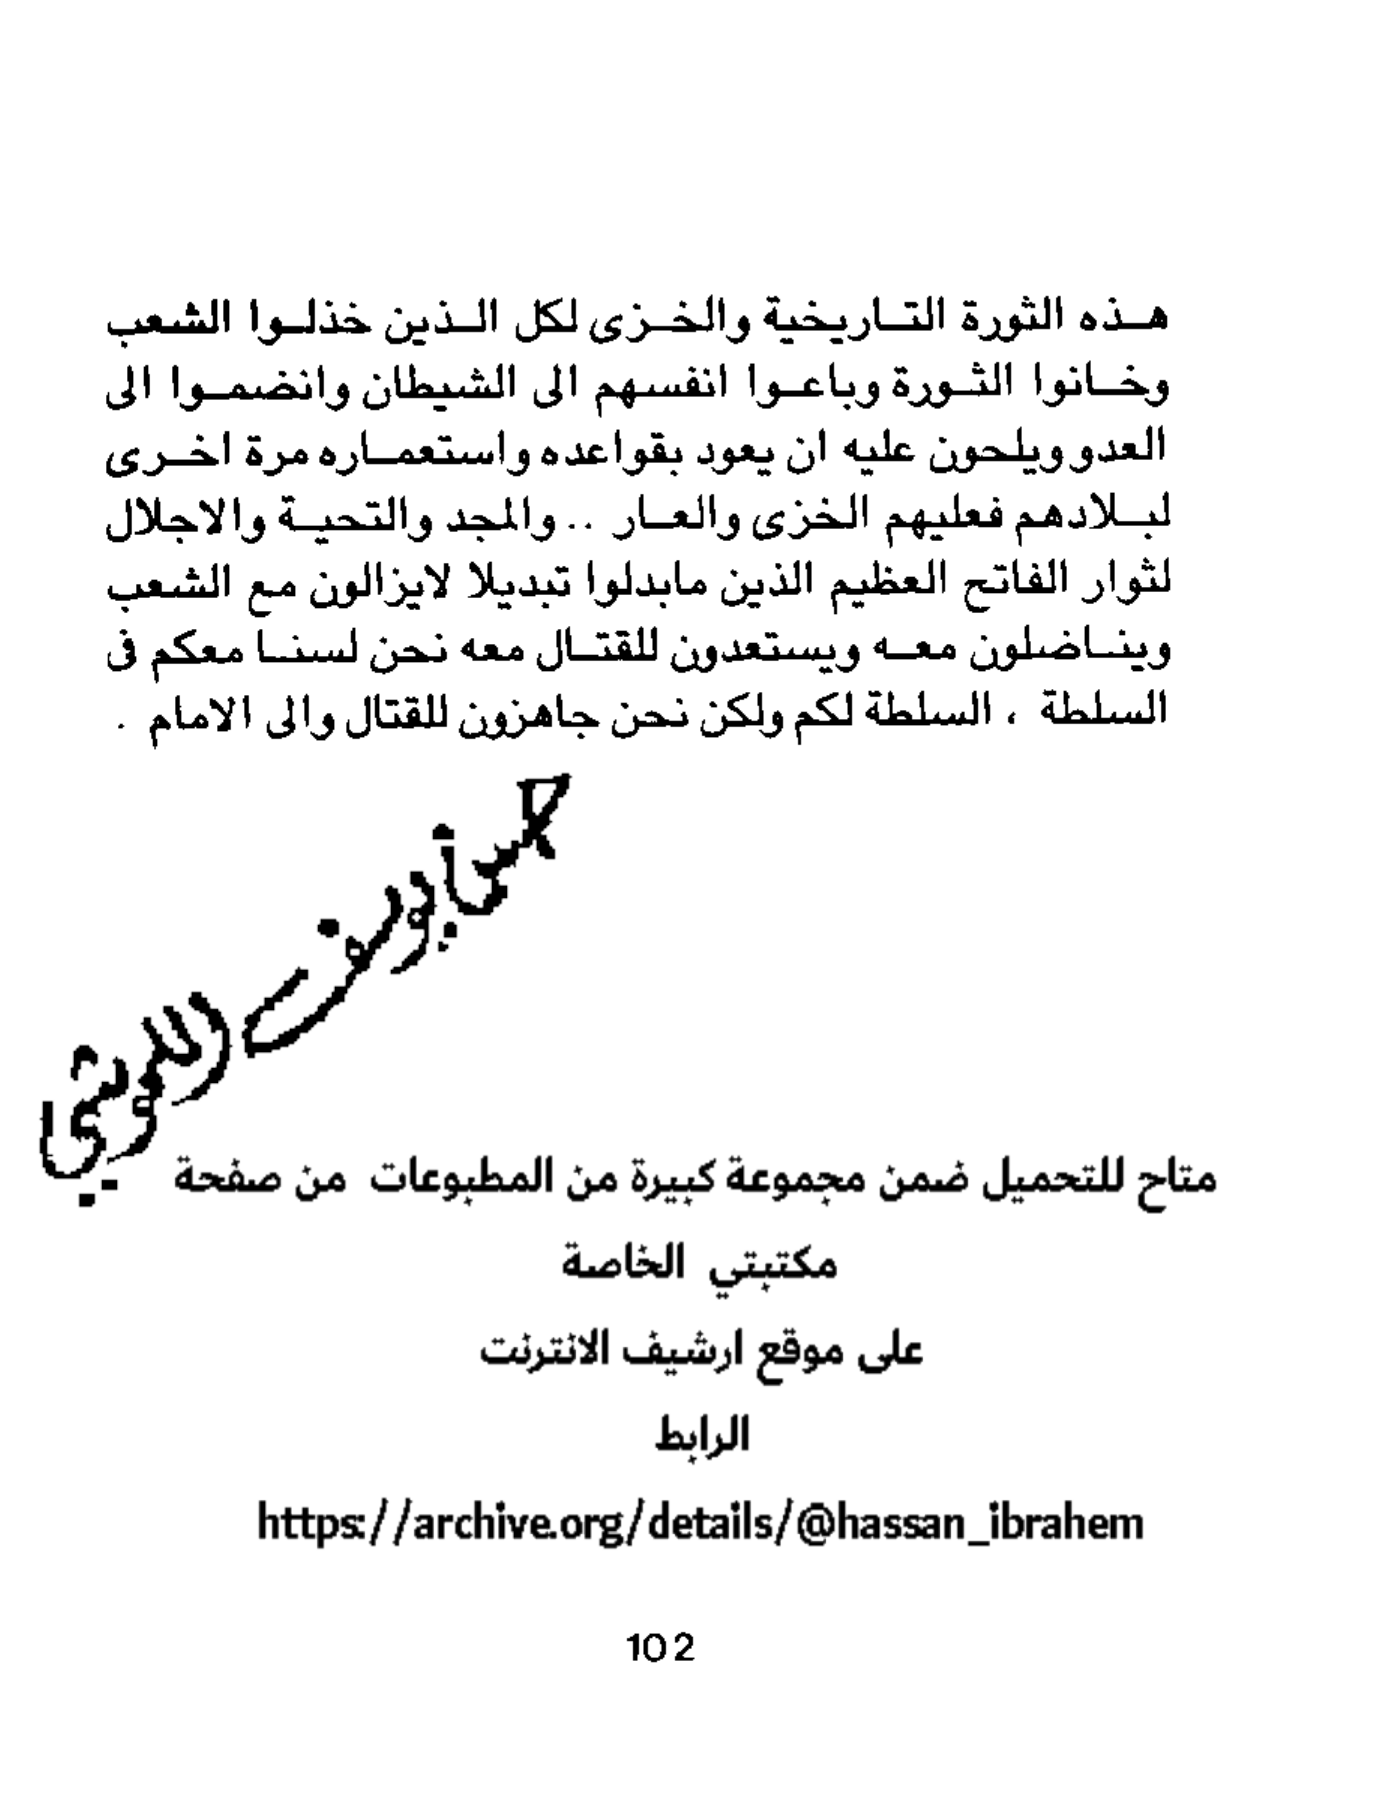 هذه الثورة التاريخية والخزى لكل الذين خذلوا الشعب
وخانوا الثورة وباعوا انفسهم الى الشيطان وانضموا الى
العدو ويلحون عليه ان يعود بقواعده واستعماره مرة اخرى
لبلادهم فعليهم الخزى والعار .. والمجد والتحية والاجلال
لثوار الفاتح العظيم الذين مابدلوا تبديلا لايزالون مع الشعب
ويناضلون معه ويستعدون للقتال معه نحن لسنا معكم فى
السلطة ، السلطة لكم ولكن نحن جاهزون للقتال والى الامام .
متاح للتحميل ضمن مجموعة كبيرة من المطبوعات من صفحة
مكتبتي الخاصة
على موقع ارشيف الانترنت
الرابط
https://archive.org/details/@hassan_ibrahem
102